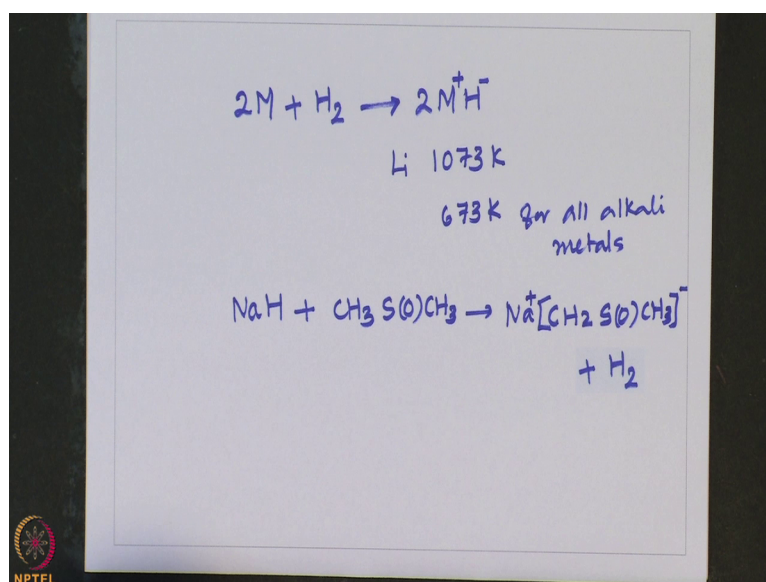 2M + H₂ → 2M⁺H⁻
Li 1073K
673K for all alkali
metals
NaH + CH₃S(O)CH₃ → Na⁺[CH₂S(O)CH₃]⁻
+ H₂
NPTEL